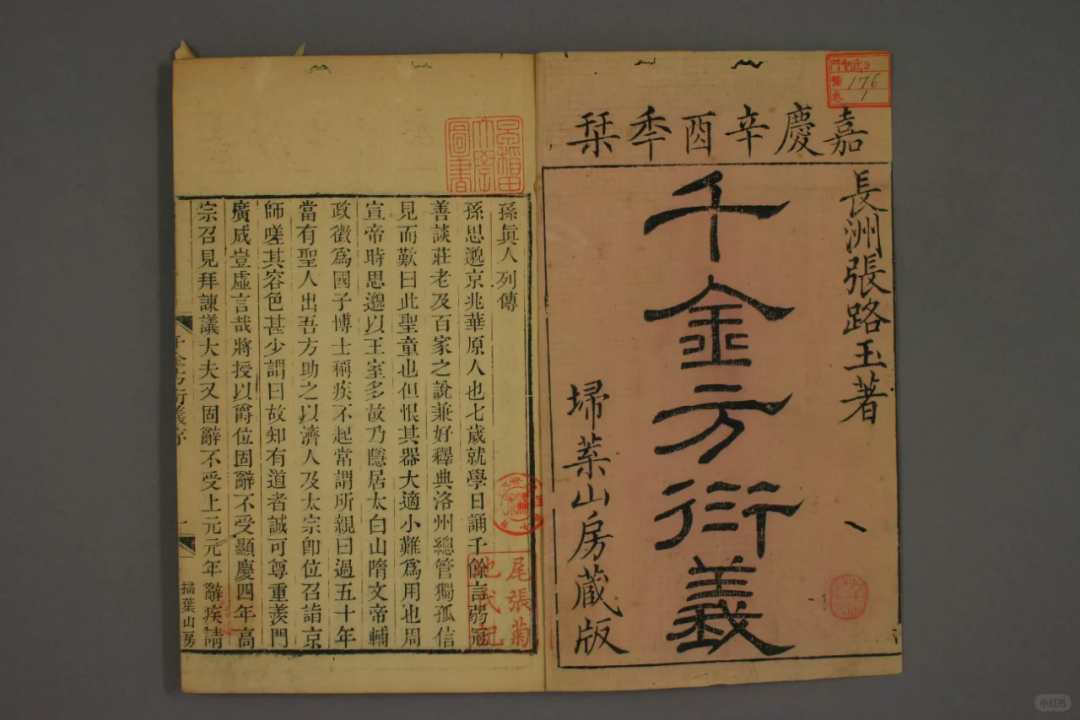 嘉慶辛酉秊栞
長洲張路玉著
千金方衍義
埽葉山房藏版
176
1
孫眞人列傳
孫思邈京兆華原人也七歲就學日誦千餘言弱冠
善談莊老及百家之說兼好釋典洛州總管獨孤信
見而歎曰此聖童也但恨其器大適小難爲用也周
宣帝時思邈以王室多故乃隱居太白山隋文帝輔
政徵爲國子博士稱疾不起常謂所親曰過五十年
當有聖人出吾方助之以濟人及太宗卽位召詣京
師嗟其容色甚少謂曰故知有道者誠可尊重羨門
廣成豈虛言哉將授以爵位固辭不受顯慶四年高
宗召見拜諫議大夫又固辭不受上元元年辭疾請
千金方衍義序
一
掃葉山房
早稲田大學圖書
尾張菊池氏記
小红书